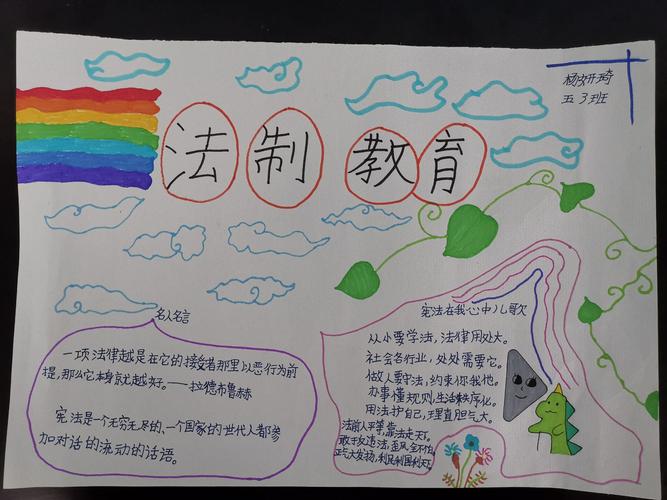 杨妍琦
五3班
法制教育
名人名言
一项法律越是在它的接受者那里以恶行为前
提,那么它本身就越好。——拉德布鲁赫
宪法是一个无穷无尽的、一个国家的世代人都参
加对话的流动的话语。
宪法在我心中儿歌
从小要学法,法律用处大。
社会各行业,处处需要它。
做人要守法,约束你我他。
办事懂规则,生活秩序化。
用法护自己,理直胆气大。
法前人平等,靠法走天下。
敢于反违法,歪风全不怕。
正气大发扬,利民利国利天下。